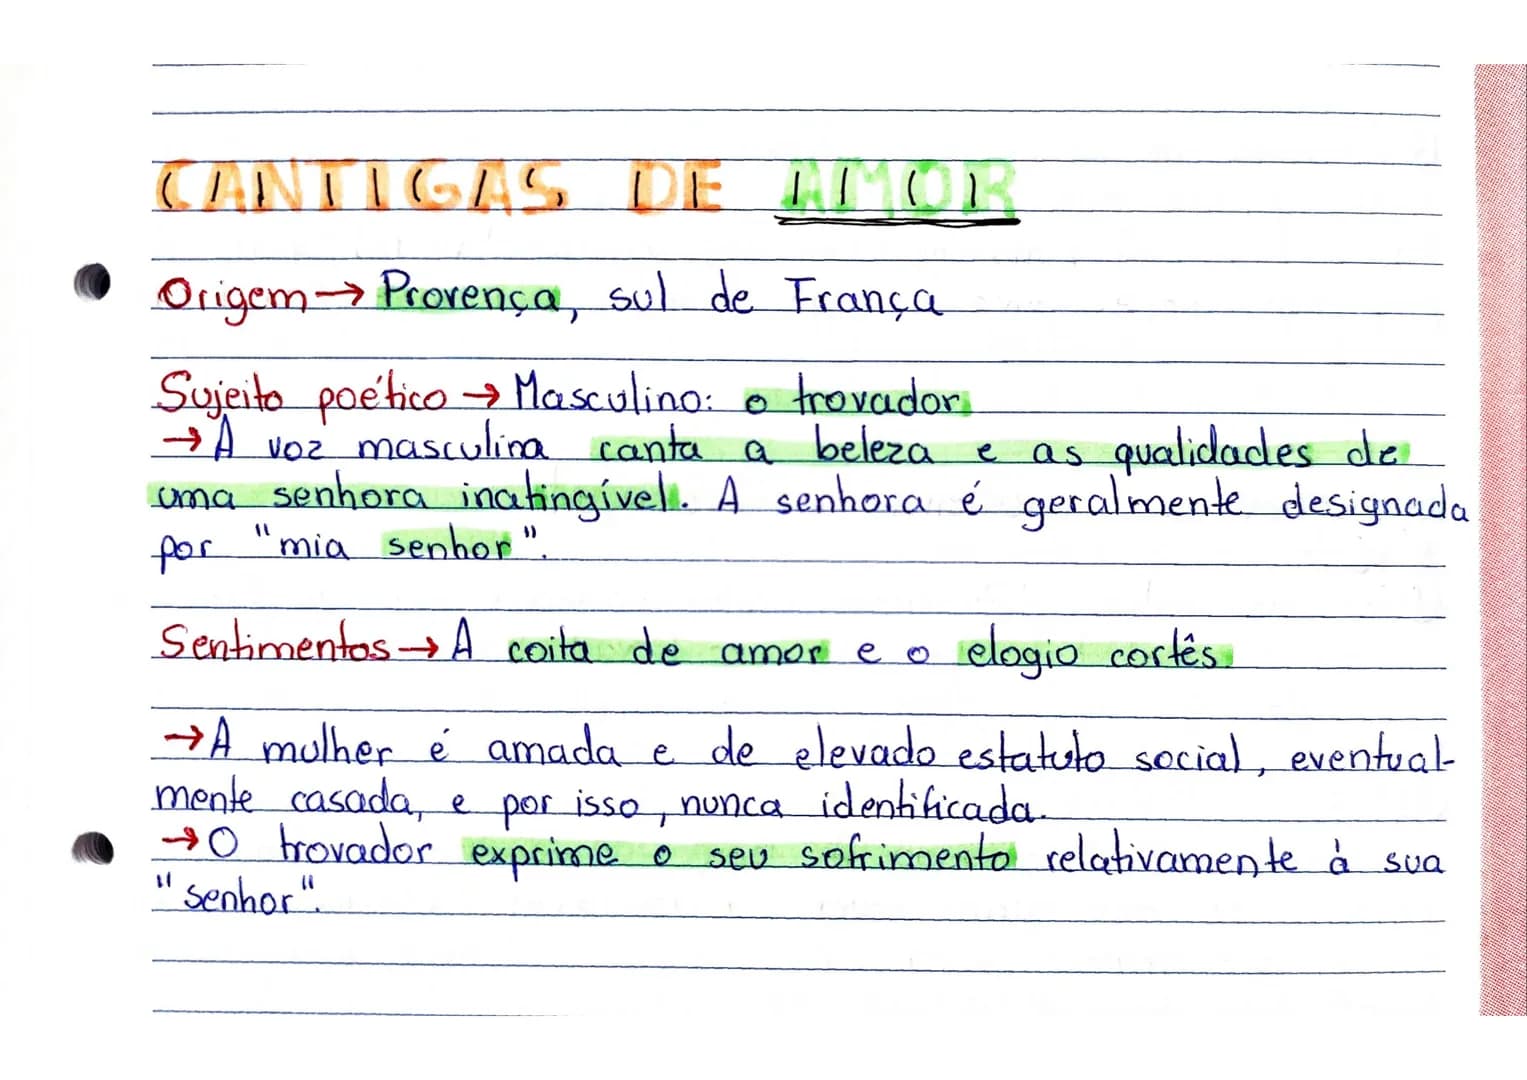 CANTIGAS DE AMOR
Origem → Provença, sul de França
Sujeito poético → Masculino: o trovador
→ A voz masculina canta a beleza e as qualidades de
uma senhora inatingível. A senhora é geralmente designada
por "mia senhor".
Sentimentos → A coita de amor e o elogio cortês
→ A mulher é amada e de elevado estatuto social, eventual-
mente casada, e por isso, nunca identificada.
→ O trovador exprime o seu sofrimento relativamente à sua
"senhor".